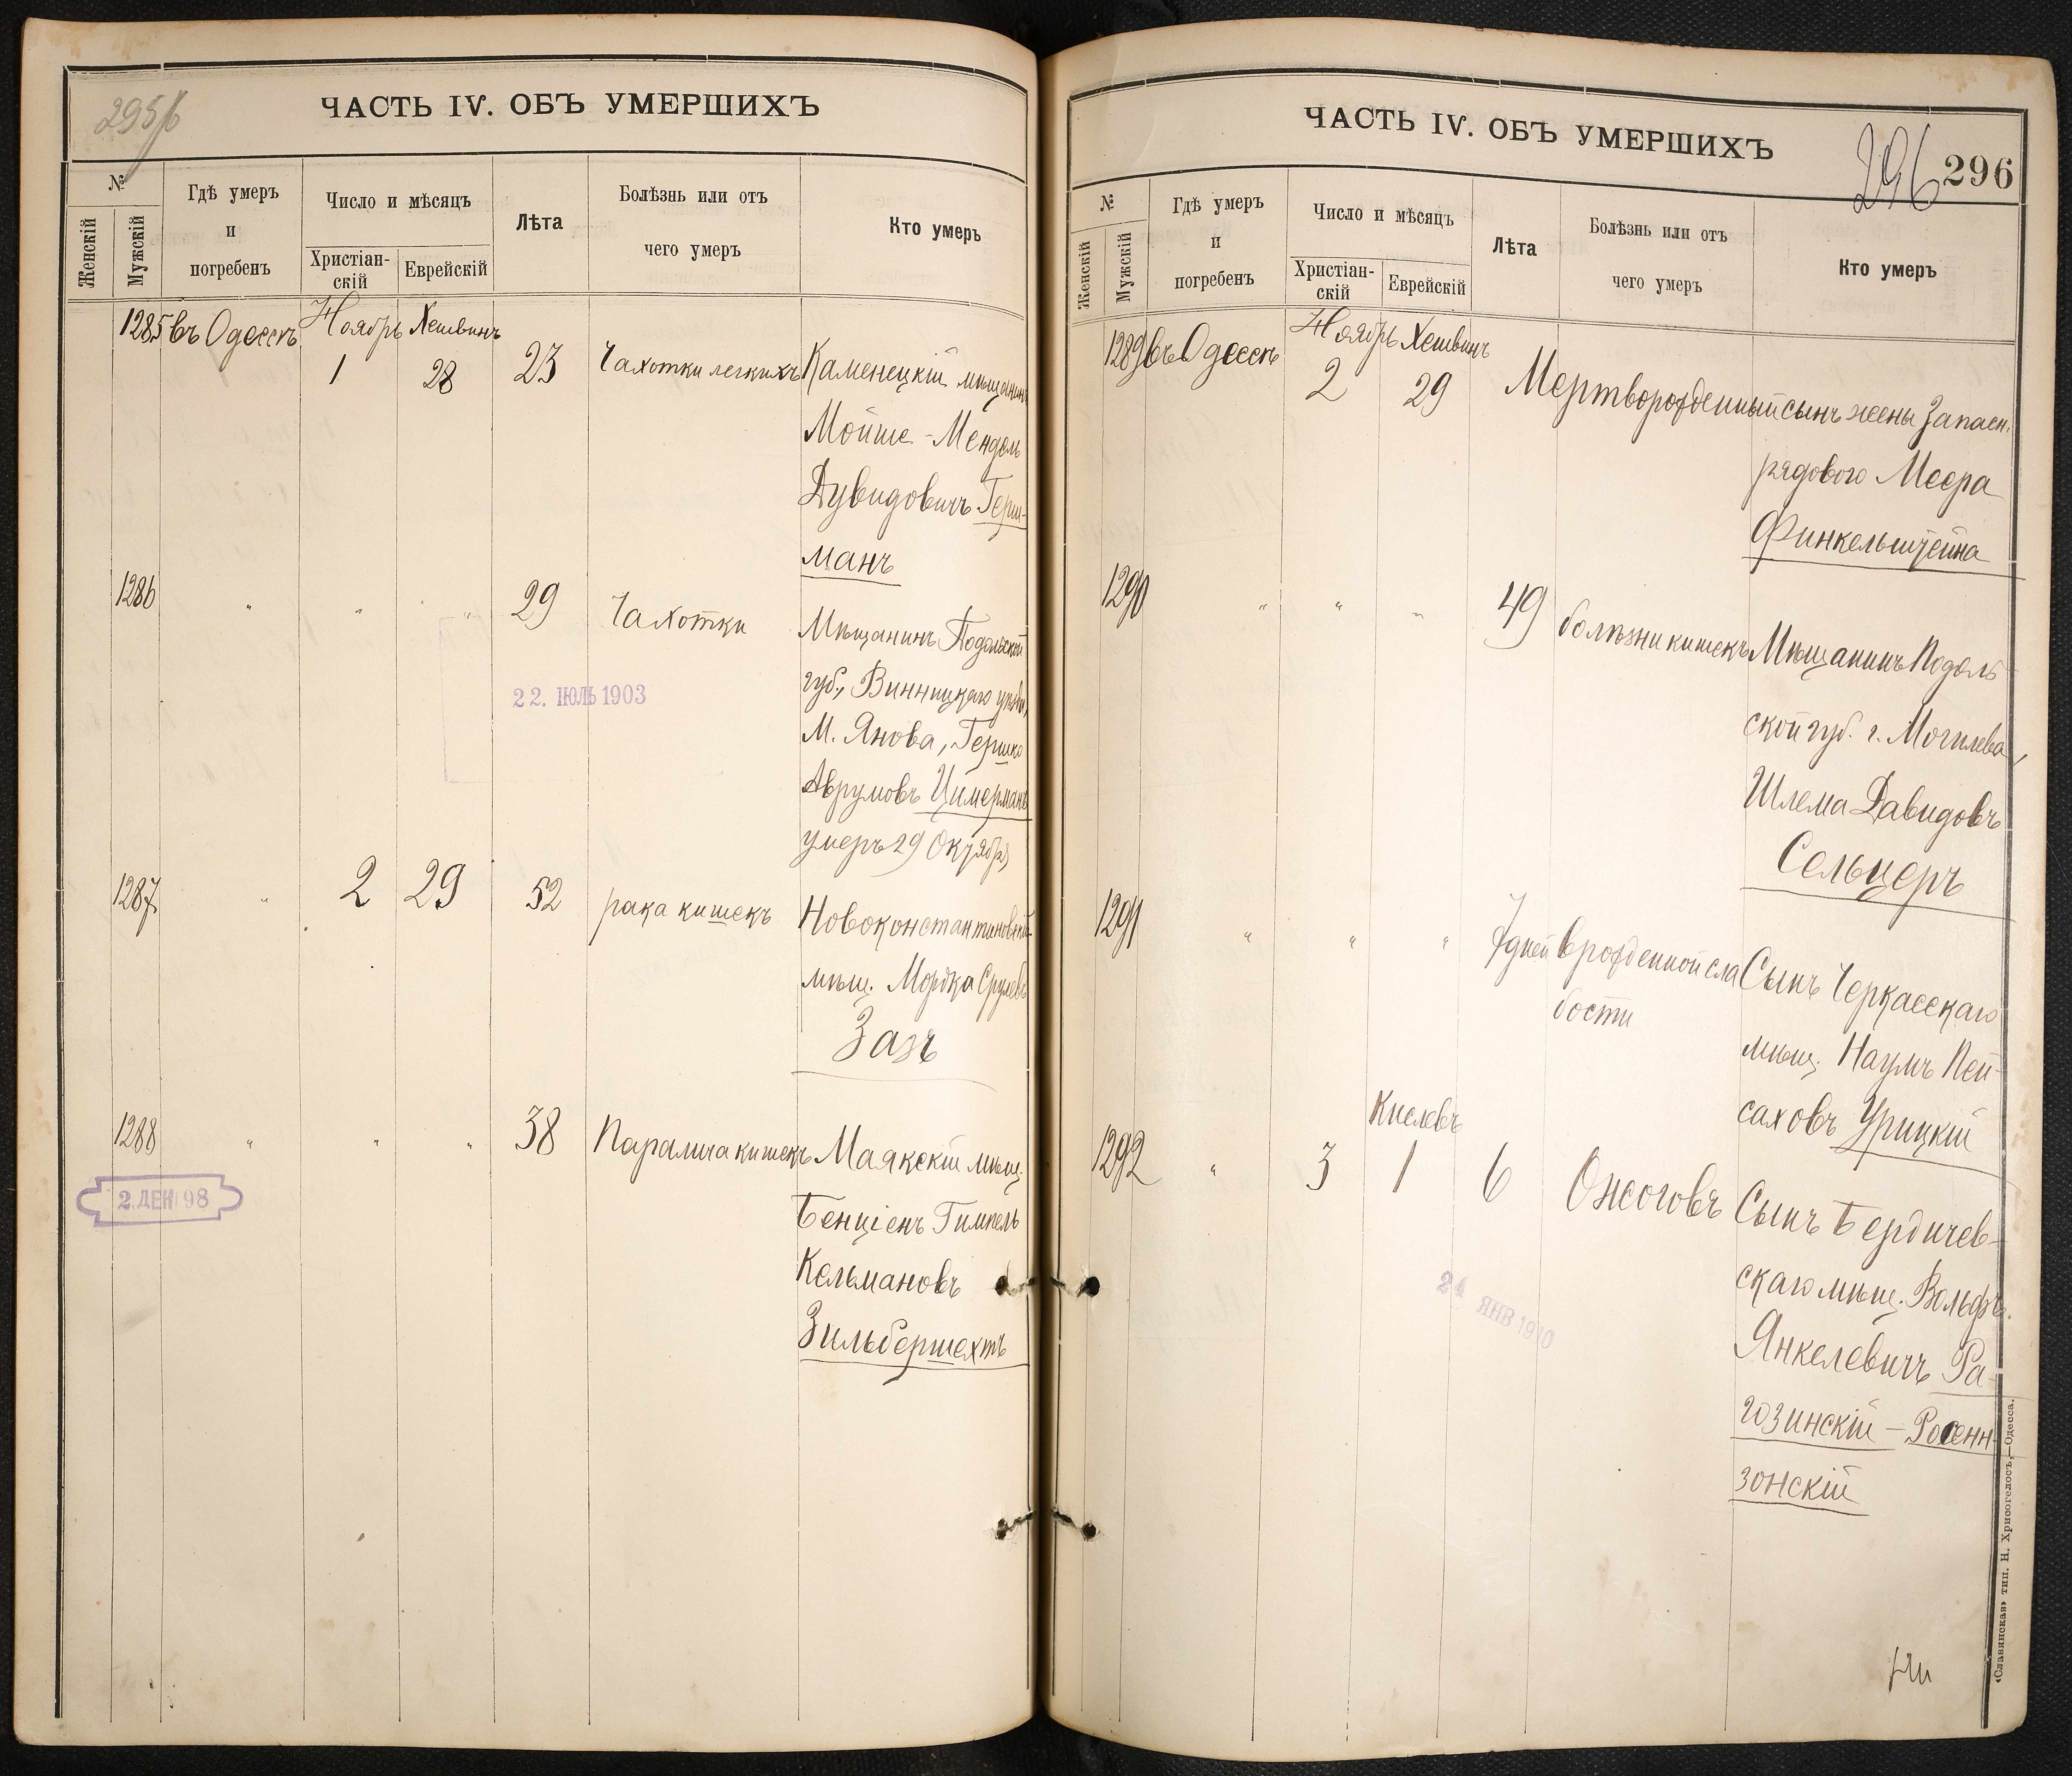 295/б
ЧАСТЬ IV. ОБЪ УМЕРШИХЪ
№
Женскій
Мужскій
Гдѣ умеръ
и
погребенъ
Число и мѣсяцъ
Христіан-
скій
Еврейскій
Лѣта
Болѣзнь или отъ
чего умеръ
Кто умеръ
1285 въ Одессѣ Ноябрь Хешвинъ
1 28 23 Чахотки легкихъ Каменецкій мѣщанинъ
Мойше-Мендель
Дувидовичъ Герш-
манъ
1286 " " " 29 Чахотки Мѣщанинъ Подольской
губ., Винницкаго уѣзда,
22. ІЮЛЬ 1903
М. Янова, Гершко
Аврумовъ Цимерманъ
умеръ 29 Октября
1287 " 2 29 52 рака кишекъ Новоконстантиновскій
мѣщ. Мордка Срулевъ
Зазъ
1288 " " " 38 Паралича кишекъ Маякскій мѣщ.
2. ДЕК 98
Бенціенъ Гимпель
Кельмановъ
Зильбершехтъ
ЧАСТЬ IV. ОБЪ УМЕРШИХЪ
296 296
№
Женскій
Мужскій
Гдѣ умеръ
и
погребенъ
Число и мѣсяцъ
Христіан-
скій
Еврейскій
Лѣта
Болѣзнь или отъ
чего умеръ
Кто умеръ
1289 въ Одессѣ Ноябрь Хешвинъ
2 29 Мертворожденный сынъ жены Запасн.
рядового Меера
Финкельштейна
1290 " " " 49 болѣзни кишекъ Мѣщанинъ Подоль-
ской губ. г. Могилева,
Шлема Давидовъ
Сельцеръ
1291 " " " 7 дней врожденной сла
бости
Сынъ Черкасскаго
мѣщ. Наумъ Пей-
саховъ Урицкій
Кислевъ
1292 " 3 1 6 Ожоговъ Сынъ Бердичев-
скаго мѣщ. Вольфъ
24 ЯНВ 1910
Янкелевичъ Ра-
гозинскій - Росенн-
зонскій
«Славянская» тип. Н. Хрисогелосъ,—Одесса.